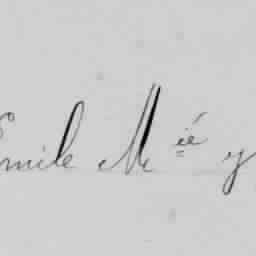 Emile M^ié y